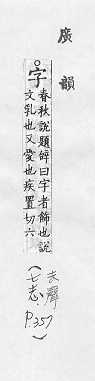 廣韻
字春秋說題辭曰字者飾也說
文乳也又愛也疾置切六
(去聲
七志.
P.357)